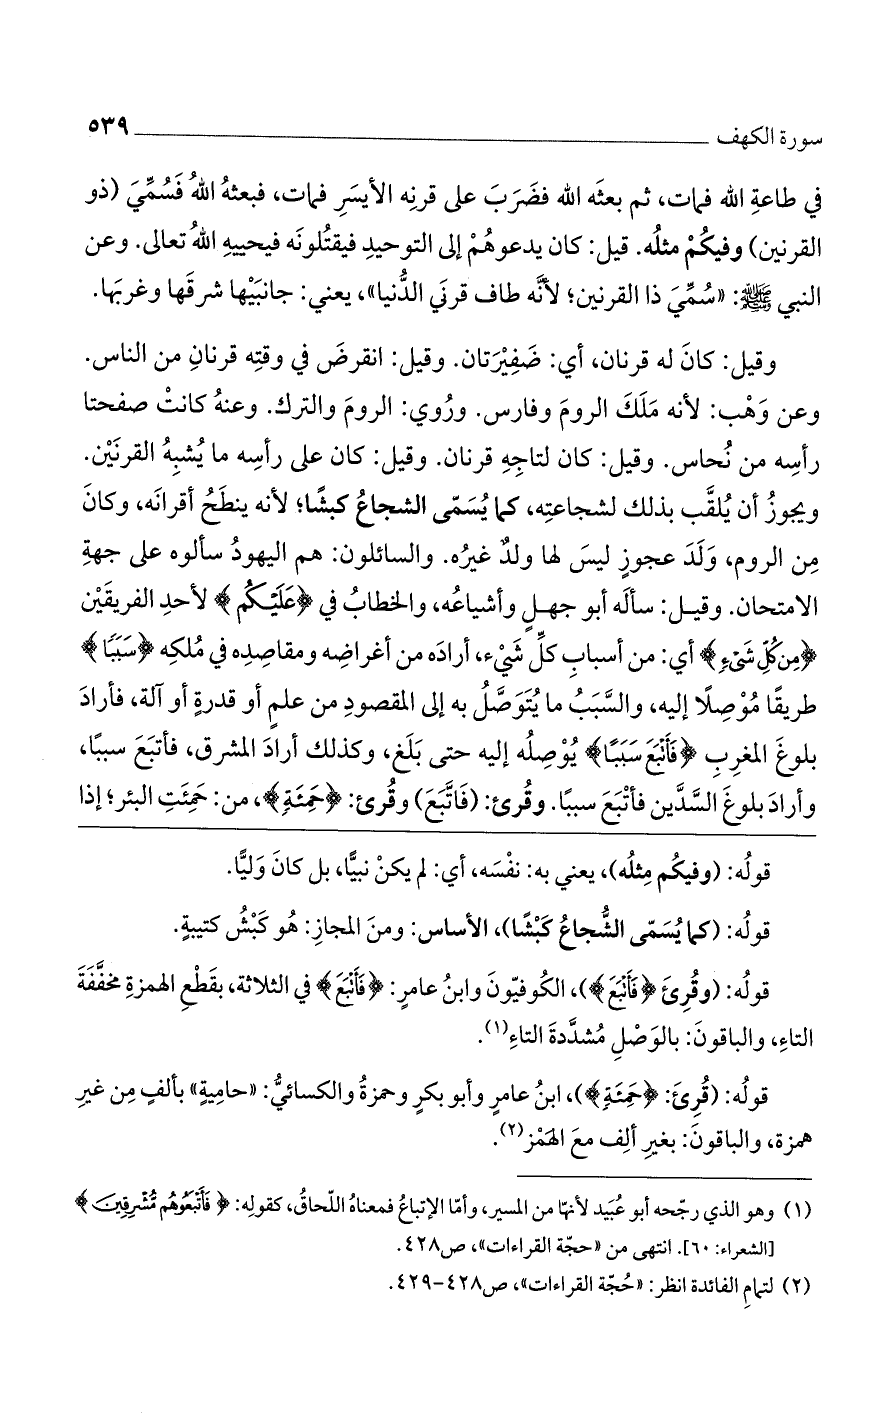 سورة الكهف ٥٣٩
في طاعةِ الله فمات، ثم بعثَه الله فضَرَبَ على قرنِه الأيسَرِ فمات، فبعثهُ اللهُ فَسُمِّيَ (ذو
القرنين) وفيكُمْ مثلُه. قيل: كان يدعوهُمْ إلى التوحيدِ فيقتُلونَه فيحييهِ اللهُ تعالى. وعن
النبي ﷺ: «سُمِّيَ ذا القرنين؛ لأنَّه طاف قرنَي الدُّنيا»، يعني: جانبَيْها شرقَها وغربَها.
وقيل: كانَ له قرنان، أي: ضَفِيْرَتان. وقيل: انقرضَ في وقتِه قرنانِ من الناس.
وعن وَهْب: لأنه مَلَكَ الرومَ وفارس. ورُوي: الرومَ والترك. وعنهُ كانتْ صفحتا
رأسِه من نُحاس. وقيل: كان لتاجِهِ قرنان. وقيل: كان على رأسِه ما يُشبِهُ القرنَيْن.
ويجوزُ أن يُلقَّب بذلك لشجاعتِه، كما يُسَمّى الشجاعُ كبشًا؛ لأنه ينطَحُ أقرانَه، وكانَ
مِن الروم، وَلَدَ عجوزٍ ليسَ لها ولدٌ غيرُه. والسائلون: هم اليهودُ سألوه على جهةِ
الامتحان. وقيل: سألَه أبو جهلٍ وأشياعُه، والخطابُ في ﴿عَلَيْكُم﴾ لأحدِ الفريقَيْن
﴿مِن كُلِّ شَىْءٍ﴾ أي: من أسبابِ كلِّ شَيْء، أرادَه من أغراضِه ومقاصِدِه في مُلكِه ﴿سَبَبًا﴾
طريقًا مُوْصِلًا إليه، والسَّبَبُ ما يُتَوَصَّلُ به إلى المقصودِ من علمٍ أو قدرةٍ أو آلة، فأرادَ
بلوغَ المغربِ ﴿فَأَتْبَعَ سَبَبًا﴾ يُوْصِلُه إليه حتى بَلَغ، وكذلك أرادَ المشرق، فأتبَعَ سببًا،
وأرادَ بلوغَ السَّدَّين فأتْبَعَ سببًا. وقُرئ: (فَاتَّبَعَ) وقُرئ: ﴿حَمِئَةٍ﴾، من: حَمِئَتِ البئر؛ إذا
قولُه: (وفيكُم مِثلُه)، يعني به: نفْسَه، أي: لم يكنْ نبيًّا، بل كانَ وَليًّا.
قولُه: (كما يُسَمّى الشُّجاعُ كَبْشًا)، الأساس: ومنَ المجازِ: هُو كَبْشُ كتيبةٍ.
قولُه: (وقُرِئَ ﴿فَأَتْبَعَ﴾)، الكُوفيّونَ وابنُ عامرٍ: ﴿فَأَتْبَعَ﴾ في الثلاثة، بقَطْعِ الهمزةِ مخفَّفَةَ
التاءِ، والباقونَ: بالوَصْلِ مُشدَّدةَ التاءِ(١).
قولُه: (قُرِئَ: ﴿حَمِئَةٍ﴾)، ابنُ عامرٍ وأبو بكرٍ وحمزةُ والكسائيُّ: «حاميةٍ» بألفٍ مِن غيرِ
همزة، والباقونَ: بغيرِ ألِف معَ الهَمْز(٢).
(١) وهو الذي رجّحه أبو عُبَيد لأنها من المسير، وأمّا الإتباعُ فمعناهُ اللّحاقُ، كقولِه: ﴿فَأَتْبَعُوهُم مُّشْرِقِينَ﴾
[الشعراء: ٦٠]. انتهى من «حجّة القراءات»، ص٤٢٨.
(٢) لتمامِ الفائدة انظر: «حُجّة القراءات»، ص٤٢٨-٤٢٩.